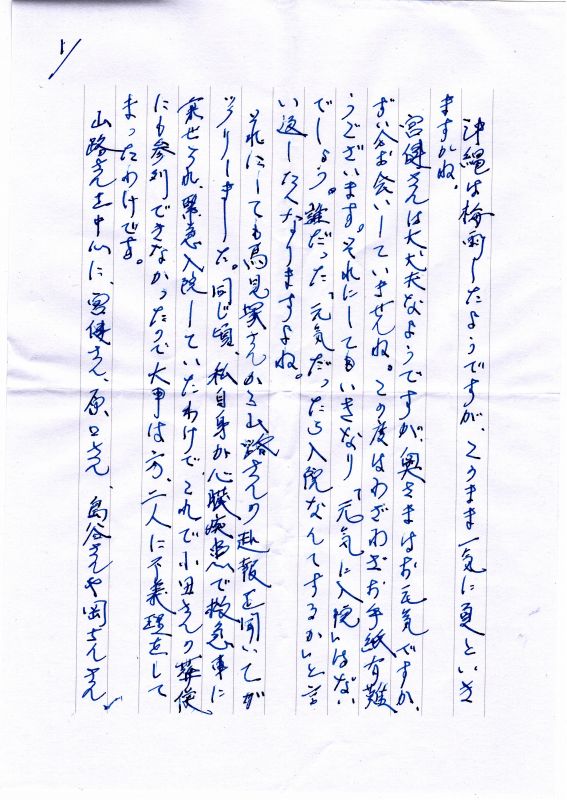 1/
沖縄は梅雨したようですが、このまま一気に夏といき
ますかね。
宮健さんは大丈夫なようですが、奥さまはお元気ですか、
ずい分お会いしていませんね。この度はわざわざお手紙有難
うございます。それにしてもいきなり「元気に入院」はない
でしょう。誰だった「元気だったら入院なんてするか」と言
い返したくなりますよね。
それにしても高見塚さんから山路さんの訃報を聞いてが
っくりしました。同じ頃、私自身が心臓疾患で救急車に
乗せられ、緊急入院していたわけで、これで小田さんの葬儀
にも参列できなかったので大甲は一方、二人に不義理をして
まったわけです。
山路さんを中心に、宮健さん、原口さん、島谷さんや岡さんさん